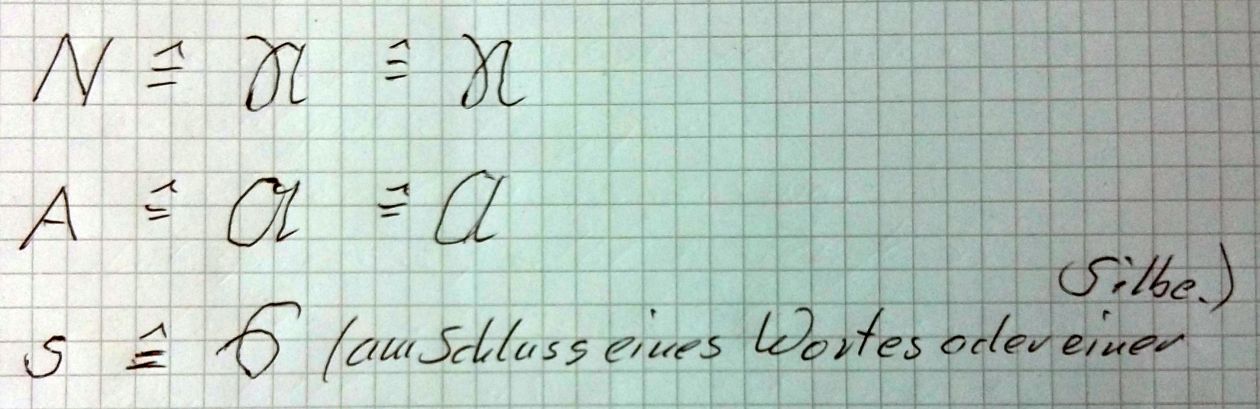 N ≙ 𝔑 ≙ 𝔑
A ≙ 𝔄 ≙ 𝔄
s ≙ ẞ (am Schluss eines Wortes oder einer
Silbe.)